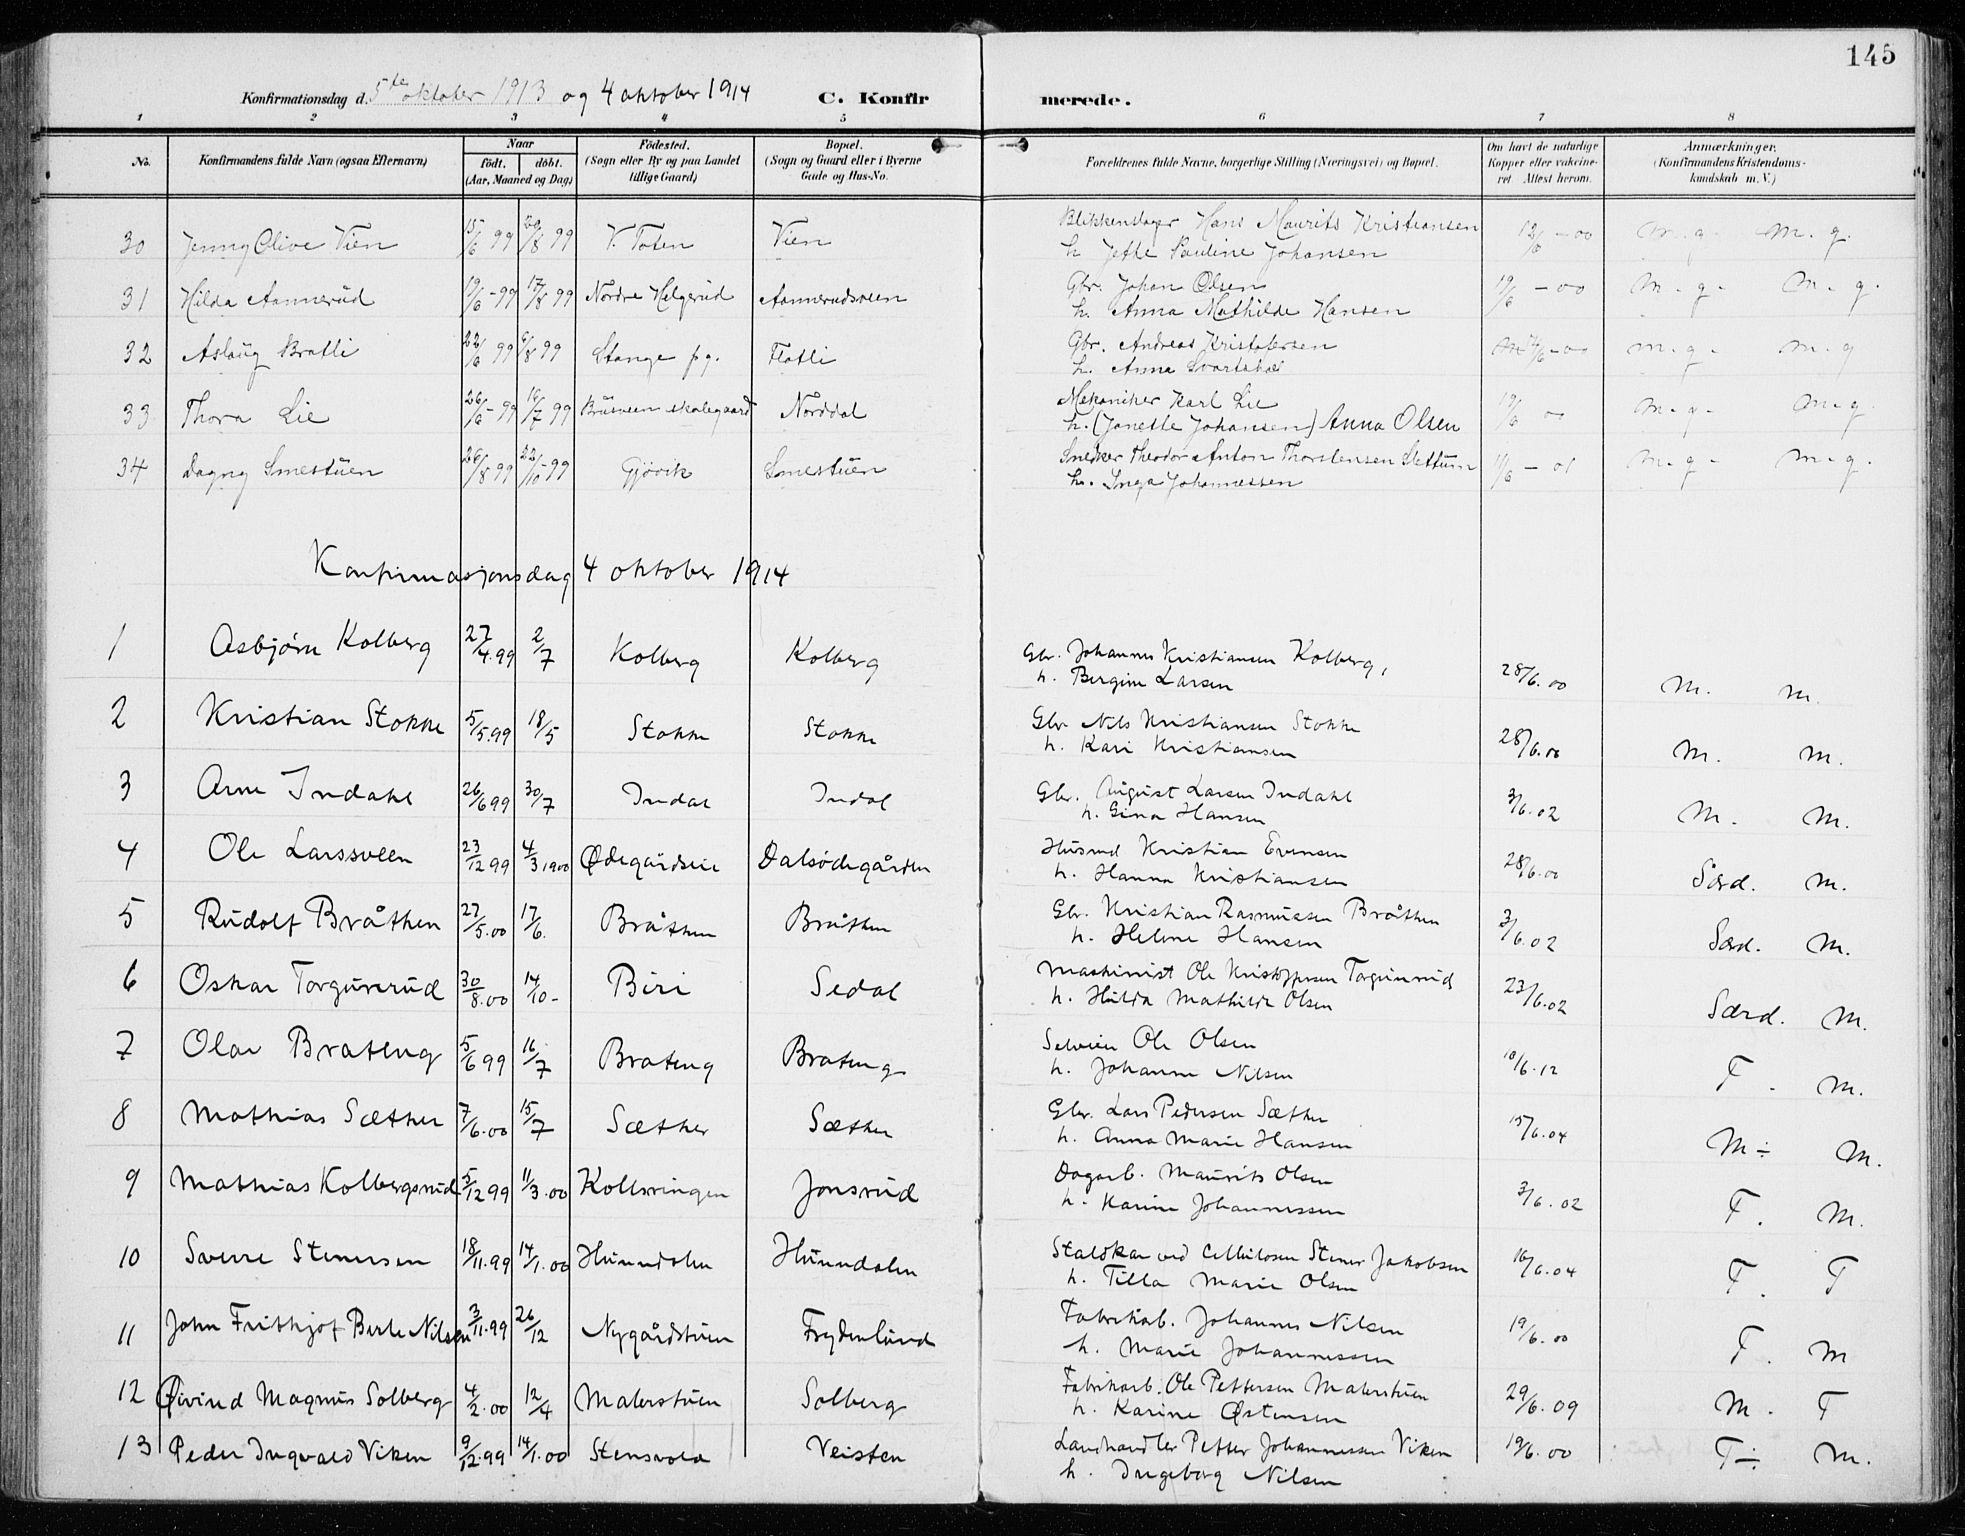 145
Konfirmationsdag d. 5te oktober 1913 og 4 oktober 1914 C. Konfir merede.
1 2 3 4 5 6 7 8
No. Konfirmandens fulde Navn (ogsaa Efternavn) Naar født. døbt. (Aar, Maaned og Dag) Fødested. (Sogn eller By og paa Landet tillige Gaard) Bopæl. (Sogn og Gaard eller i Byerne Gade og Hus-No. Forældrenes fulde Navne, borgerlige Stilling (Næringsvei) og Bopæl. Om havt de naturlige Kopper eller vakcineret. Attest herom. Anmærkninger, (Konfirmandens Kristendomskundskab m. V.)
30 Jenny Olive Vien 15/6 99 20/8 99 V. Toten Vien Blikkenslager Hans Maurits Kristiansen 12/6 - 00 m. g. m. g.
h. Jethe Pauline Johansen
31 Hilda Aannerud 19/6 - 99 17/8 99 Nordre Helgerud Aannerudsveen Gbr. Johan Olsen 19/6 - 00 m. g. m. g.
h. Anna Mathilde Hansen
32 Aslaug Bratli 22/6 99 6/8 99 Stange pg. Flatli Gbr. Andreas Kristofersen - 00 m. g. m. g
h. Anna
33 Thora Lie 26/6 - 99 16/7 99 Brusveen skolegaard Norddal Mekaniker Karl Lie 19/6 00 m. g. m. g.
h. (Janette Johansen) Anna Olsen
34 Dagny Smestuen 26/8 99 22/10 - 99 Gjövik Smestuen Snedker Theodor Anton Thorstensen Slettum 11/6 - 01 m. g. m. g.
h. Inga Johannessen
Konfirmasjonsdag 4 oktober 1914
1 Asbjørn Kolberg 27/4.99 2/7 Kolberg Kolberg Gbr. Johannes Kristiansen Kolberg, 28/6.00 M. M.
h. Bergine Larsen
2 Kristian Stokke 5/5.99 18/5 Stokke Stokke Gbr Nils Kristiansen Stokke 28/6.00 M. M.
h. Kari Kristiansen
3 Arne Indahl 26/6 99 30/7 Indal Indal Gbr. August Larsen Indahl 3/6.02 M. M.
h. Gina Hansen
4 Ole Larssveen 23/12 99 4/3 1900 Ødegårdseie Dalsødegården Husmd Kristian Evensen 28/6.00 Særd. M.
h. Hanna Kristiansen
5 Rudolf Bråthen 27/5.00 17/6. Bråthen Bråthen Gbr. Kristian Rasmussen Bråthen 3/6.02 Særd. M.
h. Helene Hansen
6 Oskar Torgunrud 30/8.00 14/10 - Biri Sedal Maskinist Ole Kristoffersen Torgunrud 23/6.02 Særd. M.
h. Hulda Mathilde Olsen
7 Olav Brateng 5/6 99 16/7 Brateng Brateng Selveier Ole Olsen 10/6.12 T. M.
h. Johanne Nilsen
8 Mathias Sæther 7/6.00 15/7 Sæther Sæther Gbr. Lars Pedersen Sæther 15/6.04 M ÷ M.
h. Anna Marie Hansen
9 Mathias Kolbergsrud 5/12 99 11/3.00 Kollsvingen Jonsrud Dagarb. Maurits Olsen 3/6.02 T. M.
h. Karine Johannessen
10 Sverre Stenersen 18/11.99 14/1.00 Hunndalen Hunndalen Staldkar ved Cellulosen Stener Jakobsen 16/6.04 T. T
h. Tilla Marie Olsen
11 John Frithjof Berle Nilsen 3/11.99 26/12 Nygårdstuen Frydenlund Fabrikarb. Johannes Nilsen 19/6.00 T. M
h. Marie Johannessen
12 Øivind Magnus Solberg 4/2.00 12/4 Malerstuen Solberg Fabrikarb. Ole Pettersen Malerstuen 29/6.09 M. T
h. Karine Østensen
13 Peder Ingvald Viken 9/12.99 14/1.00 Stensvold Veisten Landhandler Petter Johannessen Viken 19/6.00 T ÷ M.
h. Ingeborg Nilsen